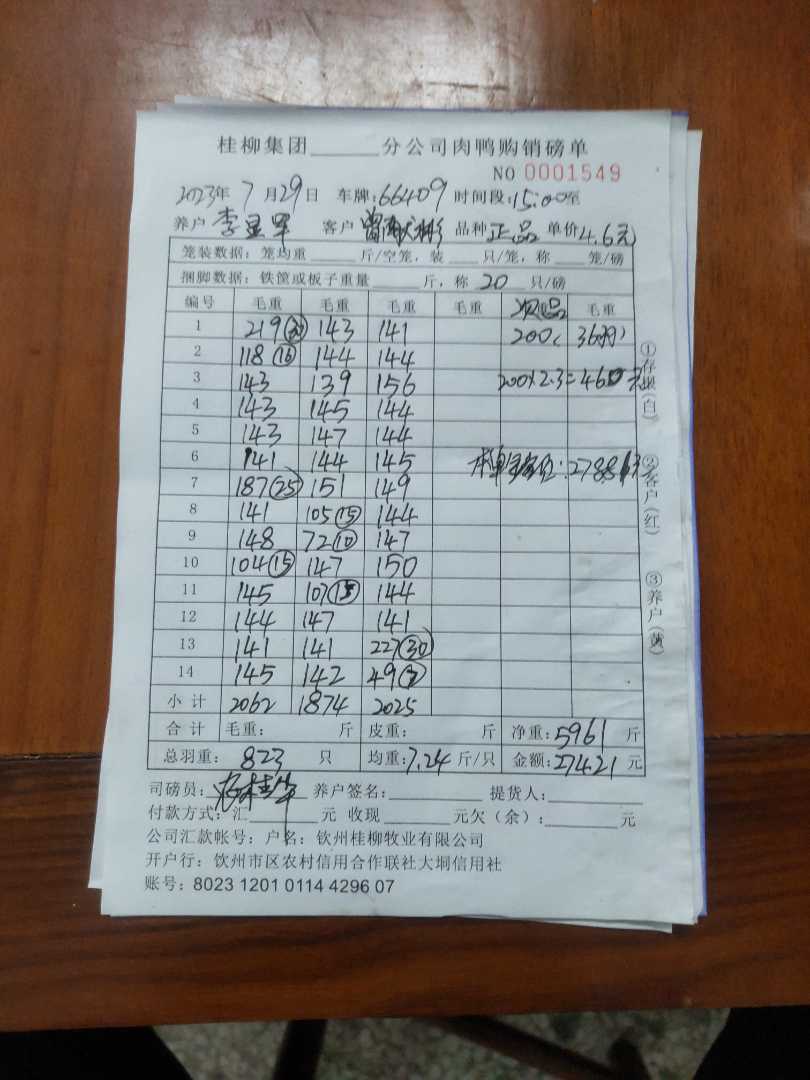 桂柳集团______分公司肉鸭购销磅单
NO 0001549
2023年 7 月 29 日 车牌:66409 时间段:15:00至
养户 李 客户 曾 品种 正品 单价 4.6元
笼装数据: 笼均重______斤/空笼, 装____只/笼, 称____笼/磅
捆脚数据: 铁筐或板子重量______斤, 称 20 只/磅
编号 毛重 毛重 毛重 毛重 次品 毛重
1 219 (30) 143 141 200(36羽)
2 118 (16) 144 144
3 143 139 156 200×2.3=460元
4 143 145 144
5 143 147 144
6 141 144 145
7 187 (25) 151 149
8 141 105 (15) 144
9 148 72 (10) 147
10 104 (15) 147 150
11 145 107 (15) 144
12 144 147 141
13 141 141 227 (30)
14 145 142 49 (7)
小计 2062 1874 2025
合计 毛重: 斤 皮重: 斤 净重: 5961 斤
总羽重: 823 只 均重: 7.24 斤/只 金额: 27421 元
司磅员: 养户签名:________ 提货人:________
付款方式: 汇________元 收现________元欠(余):________元
公司汇款帐号: 户名: 钦州桂柳牧业有限公司
开户行: 钦州市区农村信用合作联社大垌信用社
账号: 8023 1201 0114 4296 07
①存根(白)
②客户(红)
③养户(黄)